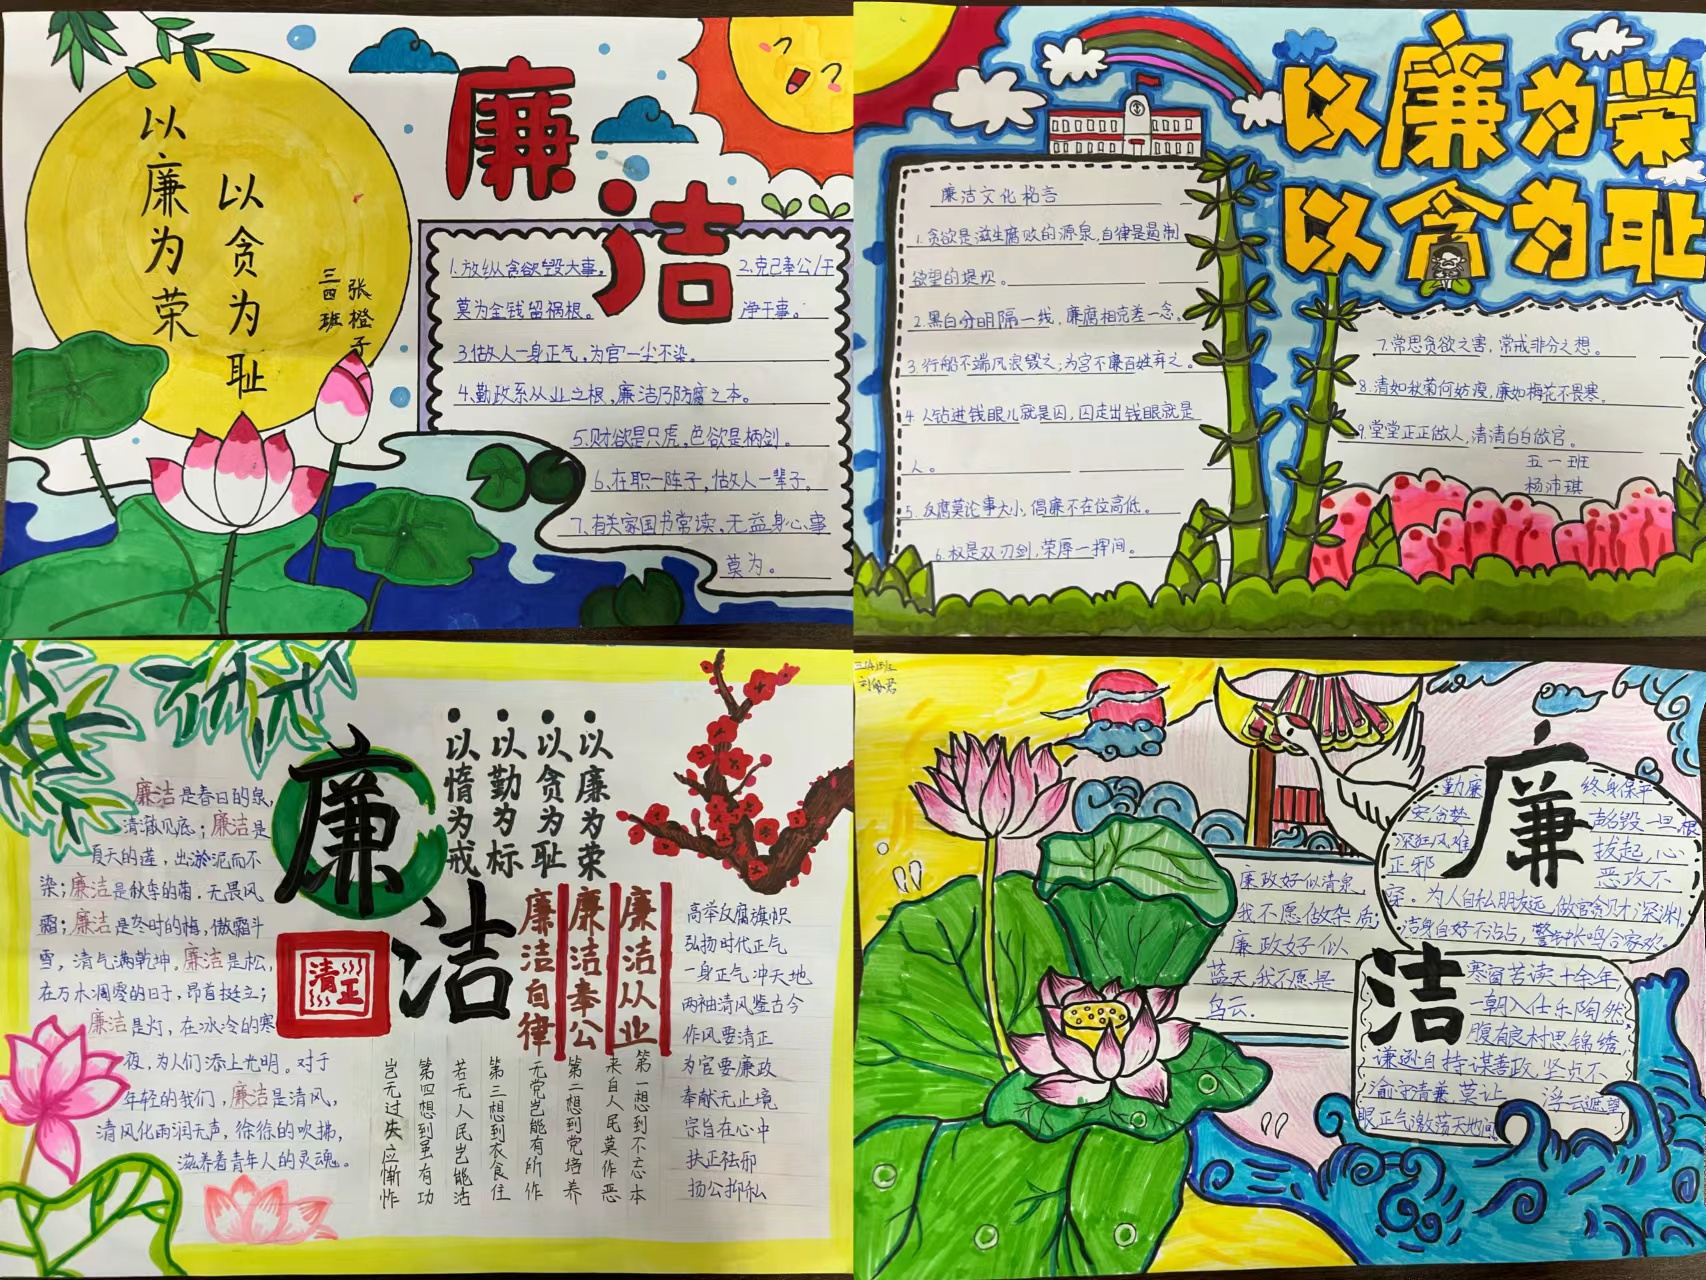 以廉为荣
以贪为耻
三四班
张橙子
廉
洁
1.放纵贪欲毁大事。
莫为金钱留祸根。
2.克己奉公/干
净干事。
3.做人一身正气,为官一尘不染。
4.勤政系从业之根,廉洁乃防腐之本。
5.财欲是只虎,色欲是柄剑。
6.在职一阵子,做人一辈子。
7.有关家国书常读,无益身心事
莫为。
以廉为荣
以贪为耻
廉洁文化格言
1.贪欲是滋生腐败的源泉,自律是遏制
欲望的堤坝。
2.黑白分明隔一线,廉腐相克差一念。
3.行船不端风浪毁之;为官不廉百姓弃之。
4.人钻进钱眼儿就是囚,囚走出钱眼就是
人。
5.反腐莫论事大小,倡廉不在位高低。
6.权是双刃剑,荣辱一挥间。
7.常思贪欲之害,常戒非分之想。
8.清如秋菊何妨瘦,廉如梅花不畏寒。
9.堂堂正正做人,清清白白做官。
五一班
杨沛琪
廉洁是春日的泉,
清澈见底;廉洁是
夏天的莲,出淤泥而不
染;廉洁是秋季的菊,无畏风
霜;廉洁是冬时的梅,傲霜斗
雪,清气满乾坤。廉洁是松,
在万木凋零的日子,昂首挺立;
廉洁是灯,在冰冷的寒
夜,为人们添上光明。对于
年轻的我们,廉洁是清风,
清风化雨润无声,徐徐的吹拂,
滋养着青年人的灵魂。
廉
洁
清正
以廉为荣
以贪为耻
以勤为标
以惰为戒
廉洁从业
廉洁奉公
廉洁自律
第一想到不忘本
来自人民莫作恶
第二想到党培养
无党岂能有所作
第三想到衣食住
若无人民岂能活
第四想到虽有功
岂无过失应惭怍
高举反腐旗帜
弘扬时代正气
一身正气冲天地
两袖清风鉴古今
作风要清正
为官要廉政
奉献无止境
宗旨在心中
扶正祛邪
扬公抑私
廉
洁
廉政好似清泉
我不愿做杂质;
廉政好似
蓝天,我不愿是
乌云.
勤廉
终身保平
安,贪婪
声名毁一旦,根
深狂风难
拔起,心
正邪
恶攻不
穿。为人自私朋友远,做官贪财深渊,
洁身自好不沾占,警钟长鸣合家欢.
寒窗苦读十余年,
一朝入仕乐陶然
腹有良材思锦绣
谦逊自持谋善政,坚贞不
渝守清廉,莫让
浮云遮望
眼正气激荡天地间。